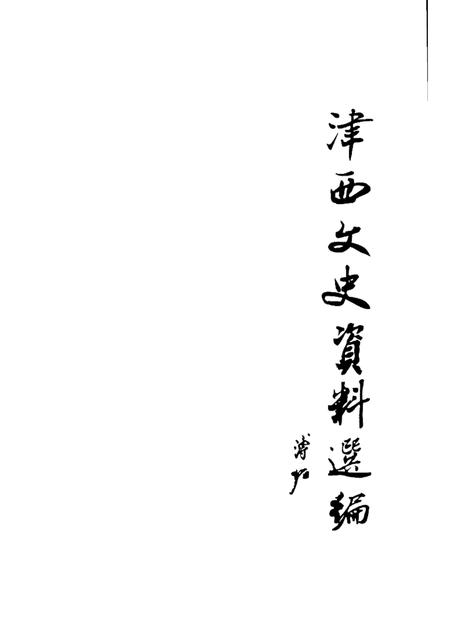 津西文史資料選編
溥佐